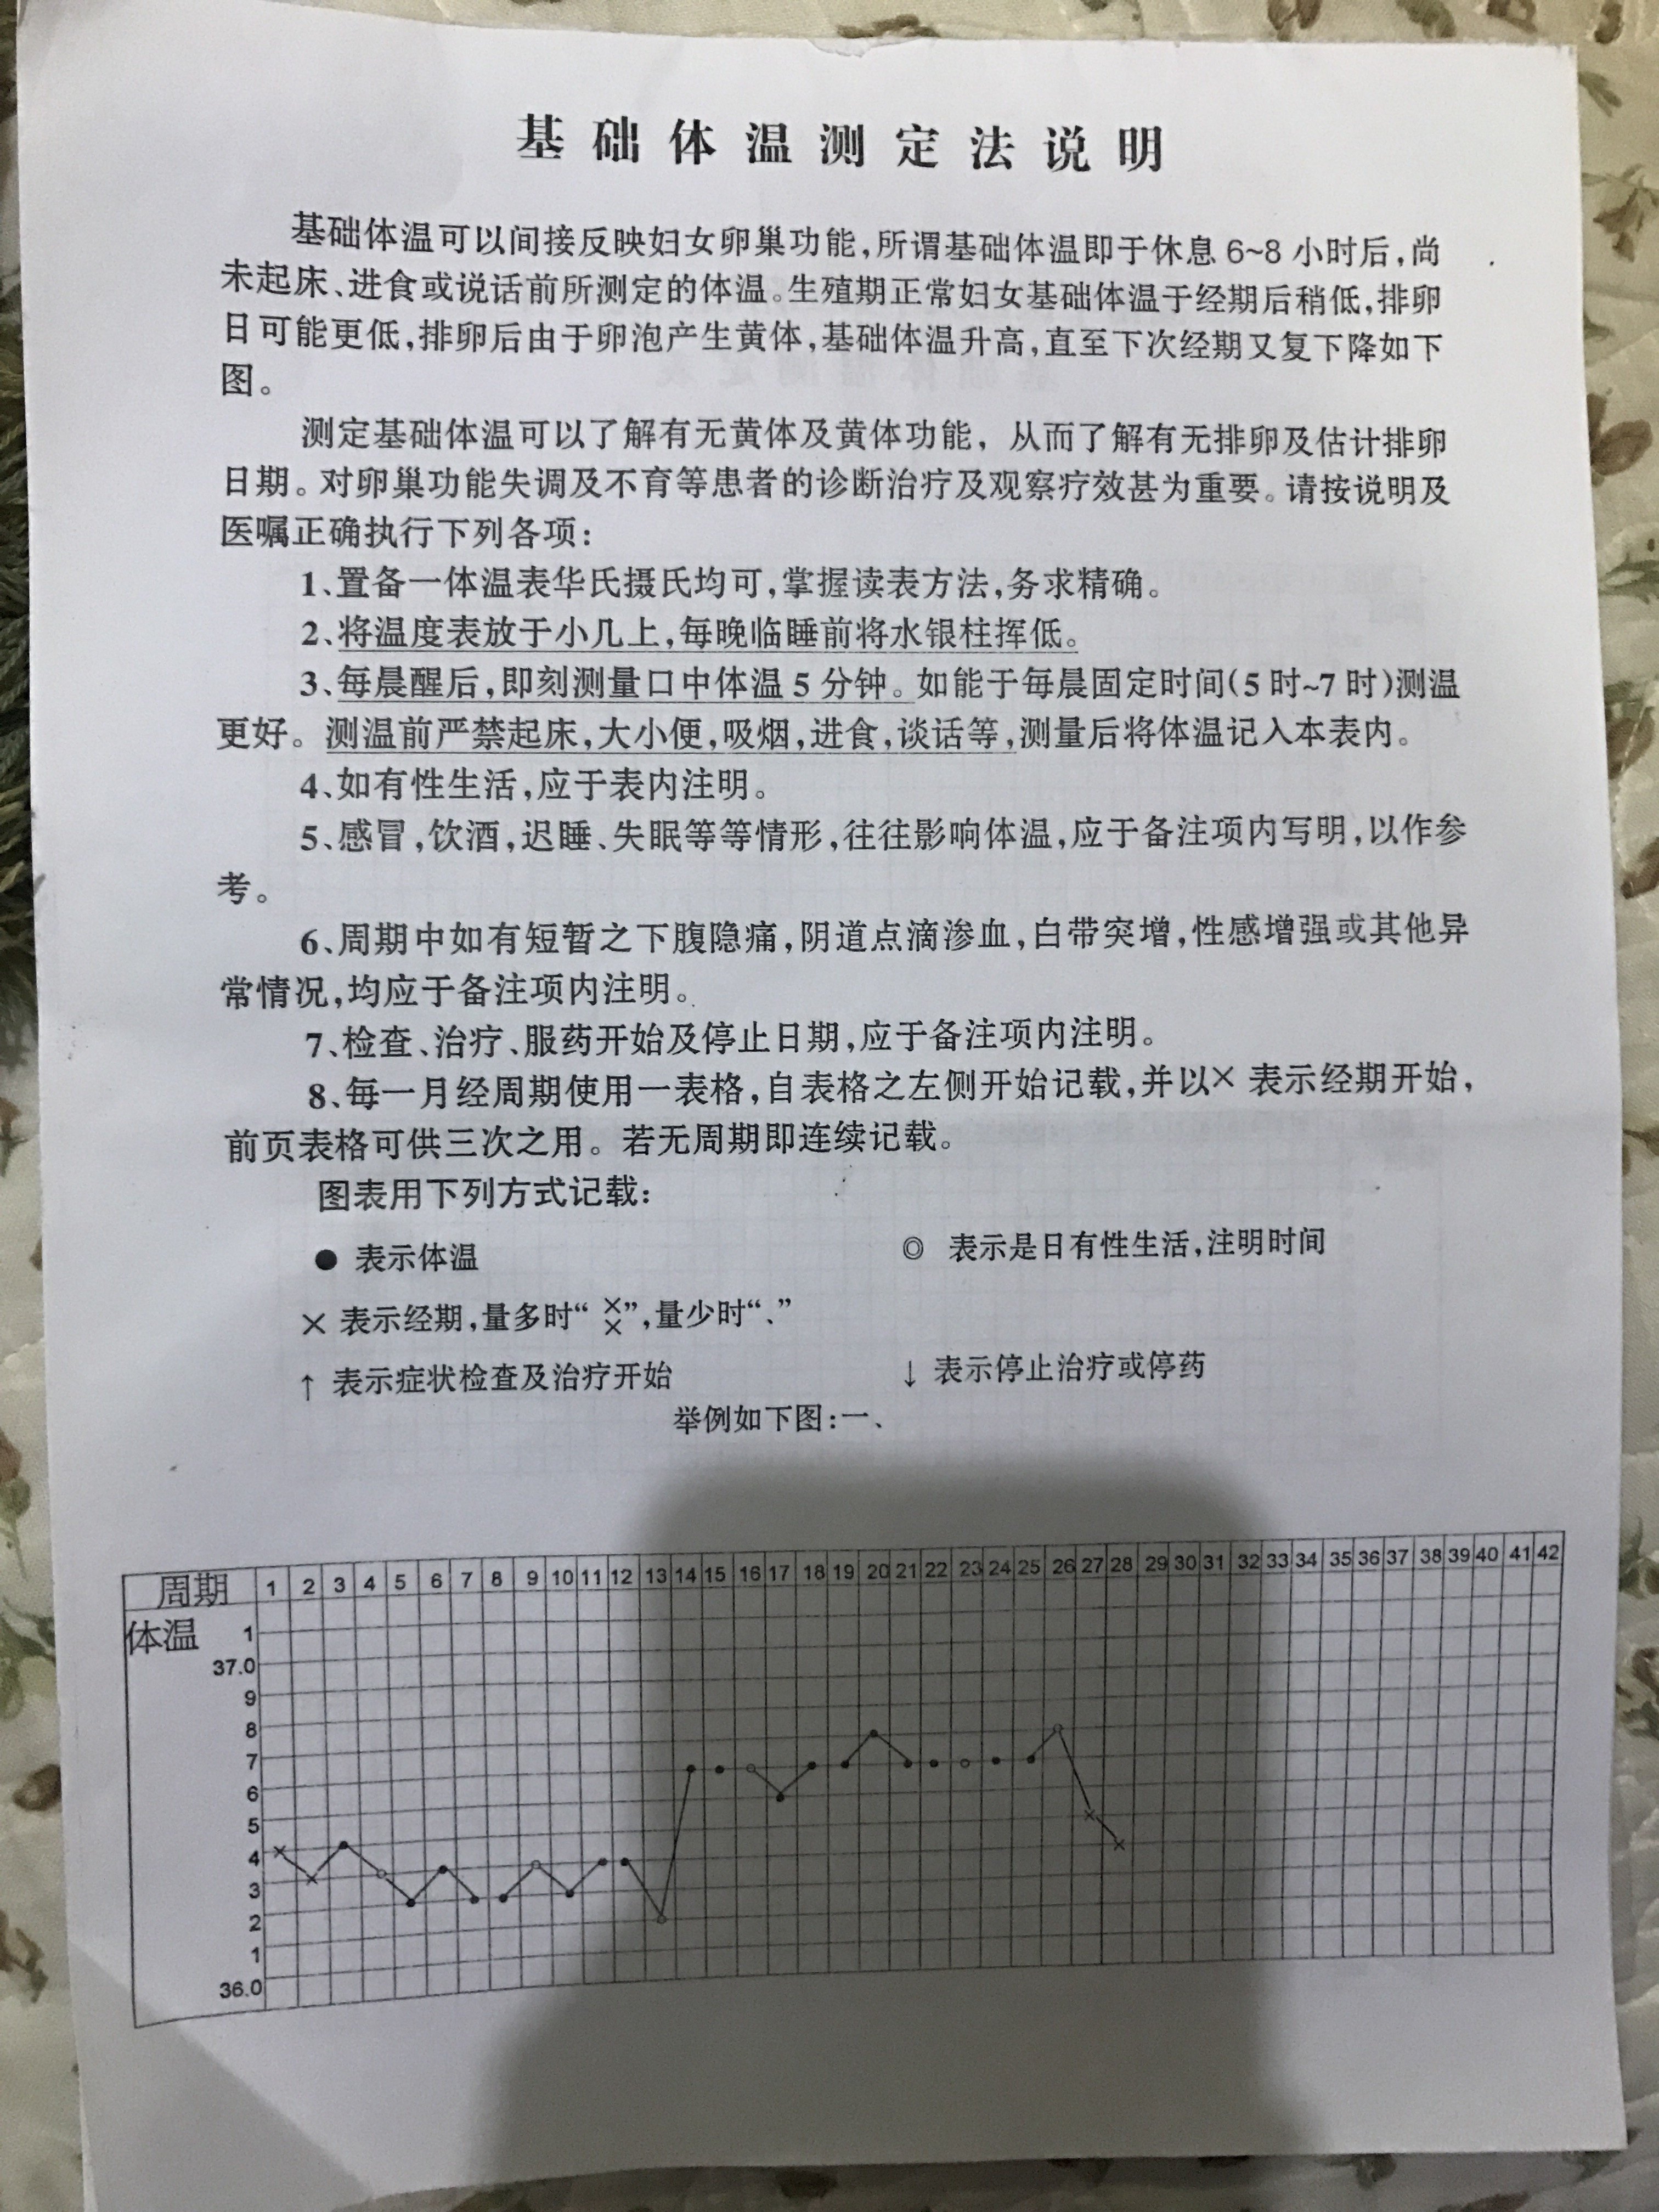 基础体温测定法说明
基础体温可以间接反映妇女卵巢功能,所谓基础体温即于休息6~8小时后,尚
未起床、进食或说话前所测定的体温。生殖期正常妇女基础体温于经期后稍低,排卵
日可能更低,排卵后由于卵泡产生黄体,基础体温升高,直至下次经期又复下降如下
图。
测定基础体温可以了解有无黄体及黄体功能,从而了解有无排卵及估计排卵
日期。对卵巢功能失调及不育等患者的诊断治疗及观察疗效甚为重要。请按说明及
医嘱正确执行下列各项:
1、置备一体温表华氏摄氏均可,掌握读表方法,务求精确。
2、将温度表放于小几上,每晚临睡前将水银柱挥低。
3、每晨醒后,即刻测量口中体温5分钟。如能于每晨固定时间(5时~7时)测温
更好。测温前严禁起床,大小便,吸烟,进食,谈话等,测量后将体温记入本表内。
4、如有性生活,应于表内注明。
5、感冒,饮酒,迟睡、失眠等等情形,往往影响体温,应于备注项内写明,以作参
考。
6、周期中如有短暂之下腹隐痛,阴道点滴渗血,白带突增,性感增强或其他异
常情况,均应于备注项内注明。
7、检查、治疗、服药开始及停止日期,应于备注项内注明。
8、每一月经周期使用一表格,自表格之左侧开始记载,并以× 表示经期开始,
前页表格可供三次之用。若无周期即连续记载。
图表用下列方式记载:
● 表示体温 ◎ 表示是日有性生活,注明时间
× 表示经期,量多时“××”,量少时“、”
↑ 表示症状检查及治疗开始 ↓ 表示停止治疗或停药
举例如下图:一、
周期 1 2 3 4 5 6 7 8 9 10 11 12 13 14 15 16 17 18 19 20 21 22 23 24 25 26 27 28 29 30 31 32 33 34 35 36 37 38 39 40 41 42
体温 1
37.0
9
8
7
6
5
4
3
2
1
36.0